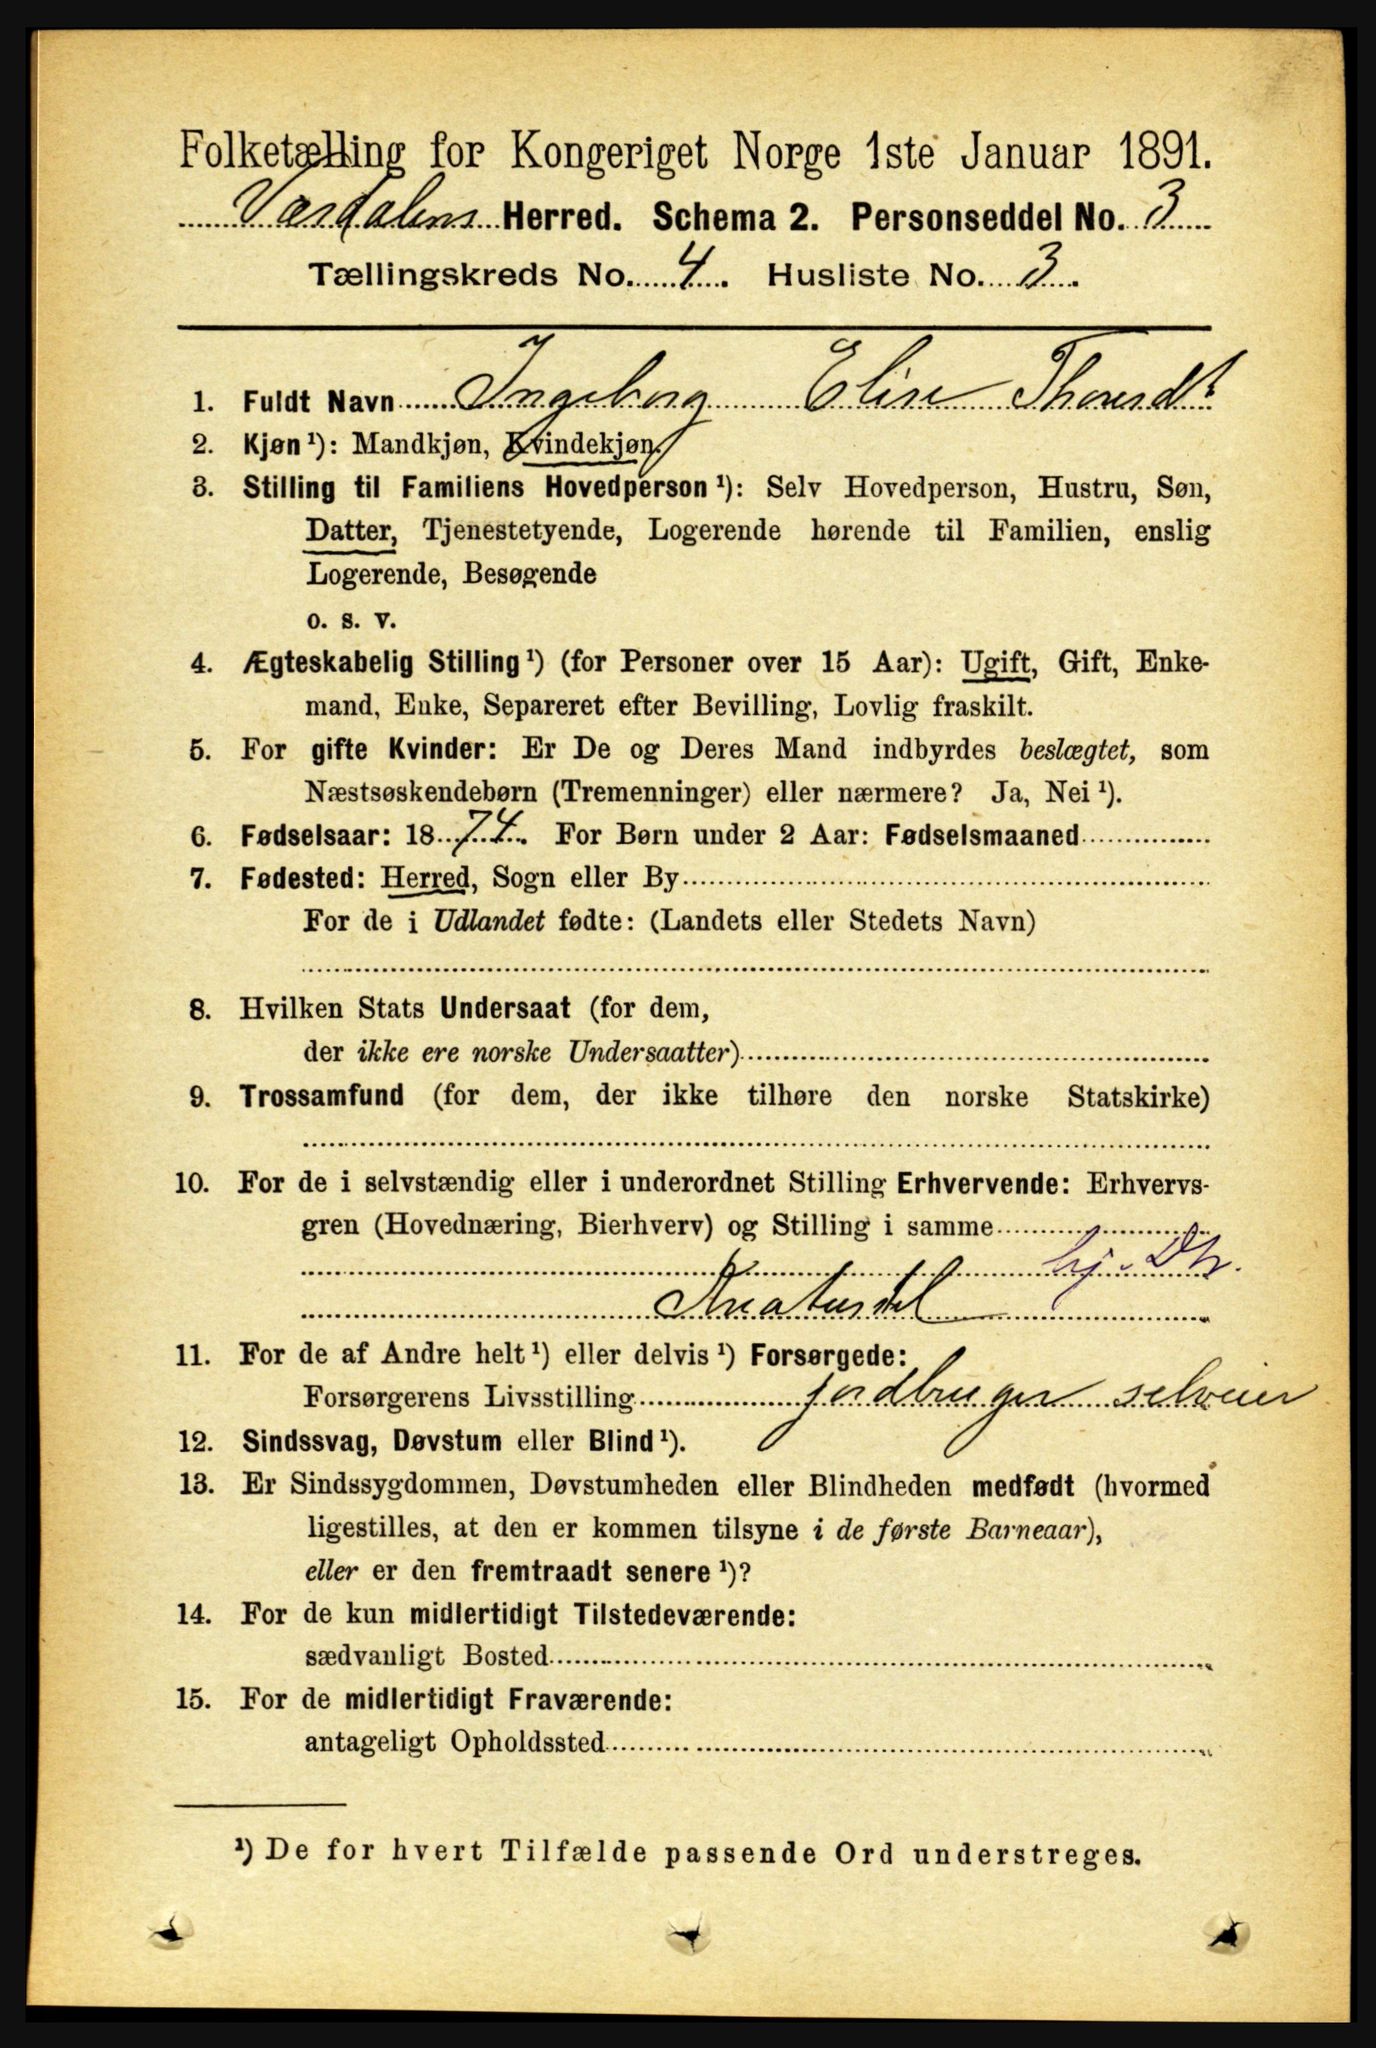 Folketælling for Kongeriget Norge 1ste Januar 1891.
Værdalens Herred. Schema 2. Personseddel No. 3
Tællingskreds No. 4. Husliste No. 3.
1. Fuldt Navn Ingeborg Elise
2. Kjøn¹): Mandkjøn, Kvindekjøn.
3. Stilling til Familiens Hovedperson¹): Selv Hovedperson, Hustru, Søn,
Datter, Tjenestetyende, Logerende hørende til Familien, enslig
Logerende, Besøgende
o. s. v.
4. Ægteskabelig Stilling¹) (for Personer over 15 Aar): Ugift, Gift, Enke-
mand, Enke, Separeret efter Bevilling, Lovlig fraskilt.
5. For gifte Kvinder: Er De og Deres Mand indbyrdes beslægtet, som
Næstsøskendebørn (Tremenninger) eller nærmere? Ja, Nei¹).
6. Fødselsaar: 1874. For Børn under 2 Aar: Fødselsmaaned
7. Fødested: Herred, Sogn eller By
For de i Udlandet fødte: (Landets eller Stedets Navn)
8. Hvilken Stats Undersaat (for dem,
der ikke ere norske Undersaatter)
9. Trossamfund (for dem, der ikke tilhøre den norske Statskirke)
10. For de i selvstændig eller i underordnet Stilling Erhvervende: Erhvervs-
gren (Hovednæring, Bierhverv) og Stilling i samme
hj. Dtr.
Kreaturstel
11. For de af Andre helt¹) eller delvis¹) Forsørgede:
Forsørgerens Livsstilling jordbruger selveier
12. Sindssvag, Døvstum eller Blind¹).
13. Er Sindssygdommen, Døvstumheden eller Blindheden medfødt (hvormed
ligestilles, at den er kommen tilsyne i de første Barneaar),
eller er den fremtraadt senere¹)?
14. For de kun midlertidigt Tilstedeværende:
sædvanligt Bosted
15. For de midlertidigt Fraværende:
antageligt Opholdssted
¹) De for hvert Tilfælde passende Ord understreges.